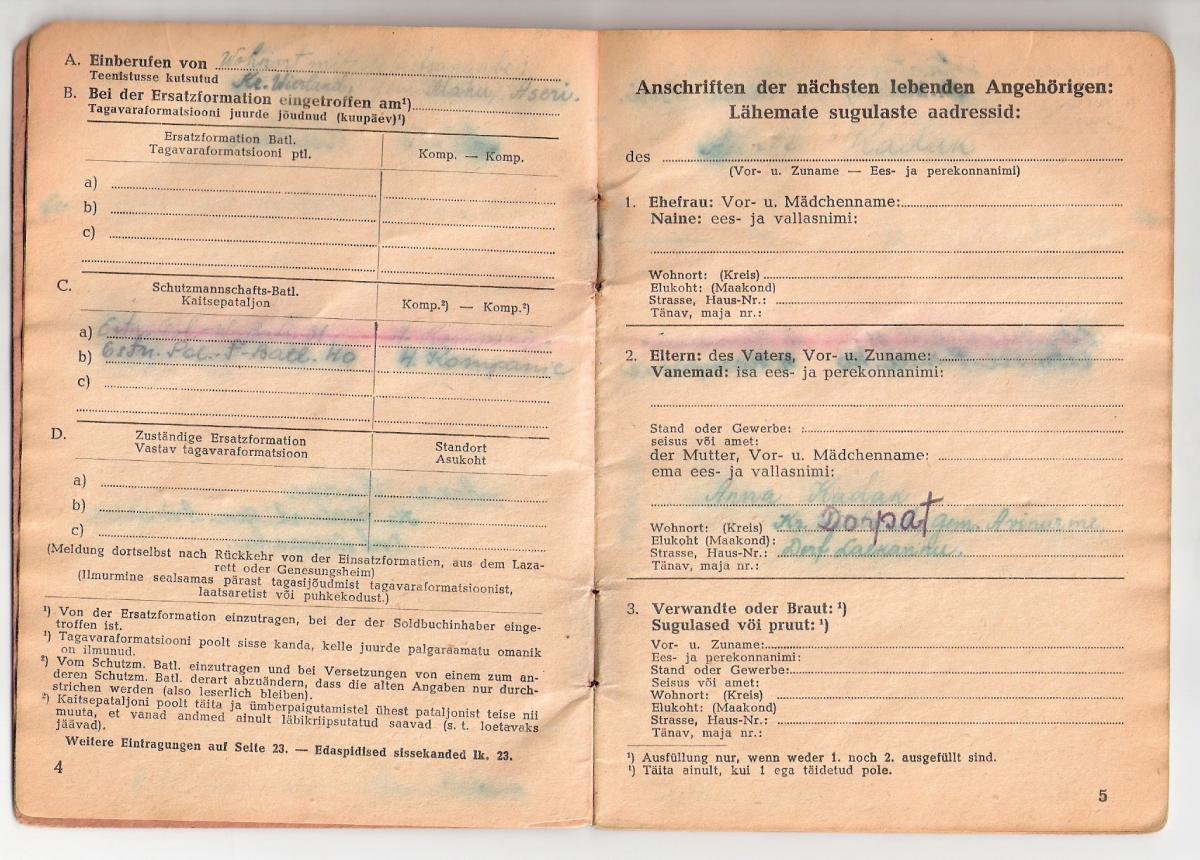 A. Einberufen von
Teenistusse kutsutud Kr. Wierland, Aseri.
B. Bei der Ersatzformation eingetroffen am¹)
Tagavaraformatsiooni juurde jõudnud (kuupäev)¹)
Ersatzformation Batl.
Tagavaraformatsiooni ptl.
Komp. — Komp.
a)
b)
c)
C.
Schutzmannschafts-Batl.
Kaitsepataljon
Komp.²) — Komp.²)
a)
b) Estn. Pol. F-Batl. 40 4 Kompanie
c)
D.
Zuständige Ersatzformation
Vastav tagavaraformatsioon
Standort
Asukoht
a)
b)
c)
(Meldung dortselbst nach Rückkehr von der Einsatzformation, aus dem Laza-
rett oder Genesungsheim)
(Ilmurmine sealsamas pärast tagasijõudmist tagavaraformatsioonist,
laatsaretist või puhkekodust.)
¹) Von der Ersatzformation einzutragen, bei der der Soldbuchinhaber einge-
troffen ist.
¹) Tagavaraformatsiooni poolt sisse kanda, kelle juurde palgaraamatu omanik
on ilmunud.
²) Vom Schutzm. Batl. einzutragen und bei Versetzungen von einem zum an-
deren Schutzm. Batl. derart abzuändern, dass die alten Angaben nur durch-
strichen werden (also leserlich bleiben).
²) Kaitsepataljoni poolt täita ja ümberpaigutamistel ühest pataljonist teise nii
muuta, et vanad andmed ainult läbikriipsutatud saavad (s. t. loetavaks
jäävad).
Weitere Eintragungen auf Seite 23. — Edaspidised sissekanded lk. 23.
4
Anschriften der nächsten lebenden Angehörigen:
Lähemate sugulaste aadressid:
des Kadak
(Vor- u. Zuname — Ees- ja perekonnanimi)
1. Ehefrau: Vor- u. Mädchenname:
Naine: ees- ja vallasnimi:
Wohnort: (Kreis)
Elukoht: (Maakond)
Strasse, Haus-Nr.:
Tänav, maja nr.:
2. Eltern: des Vaters, Vor- u. Zuname:
Vanemad: isa ees- ja perekonnanimi:
Stand oder Gewerbe: :
seisus või amet:
der Mutter, Vor- u. Mädchenname:
ema ees- ja vallasnimi:
Anna Kadak
Wohnort: (Kreis) Kr. Dorpat gem. Avinurme
Elukoht (Maakond):
Strasse, Haus-Nr.: Dorf
Tänav, maja nr.:
3. Verwandte oder Braut: ¹)
Sugulased vöi pruut: ¹)
Vor- u. Zuname:
Ees- ja perekonnanimi:
Stand oder Gewerbe:
Seisus või amet:
Wohnort: (Kreis)
Elukoht: (Maakond)
Strasse, Haus-Nr.:
Tänav, maja nr.:
¹) Ausfüllung nur, wenn weder 1. noch 2. ausgefüllt sind.
¹) Täita ainult, kui 1 ega täidetud pole.
5